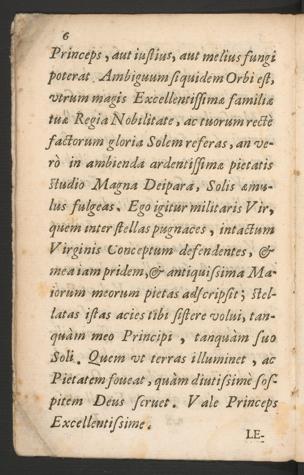 6
Princeps, aut iustius, aut melius fungi
poterat. Ambiguum siquidem Orbi est,
vtrum magis Excellentissimæ familiæ
tuæ Regia Nobilitate, ac tuorum rectè
factorum gloria Solem referas, an ve-
rò in ambienda ardentissimæ pietatis
studio Magna Deipara, Solis æmu-
lus fulgeas. Ego igitur militaris Vir,
quem inter stellas pugnaces, intactum
Virginis Conceptum defendentes, &
mea iam pridem, & antiquissima Ma-
iorum meorum pietas adscripsit; stel-
latas istas acies tibi sistere volui, tan-
quàm meo Principi, tanquàm suo
Soli. Quem vt terras illuminet, ac
Pietatem foueat, quàm diutissimè sos-
pitem Deus seruet. Vale Princeps
Excellentissime.
LE-